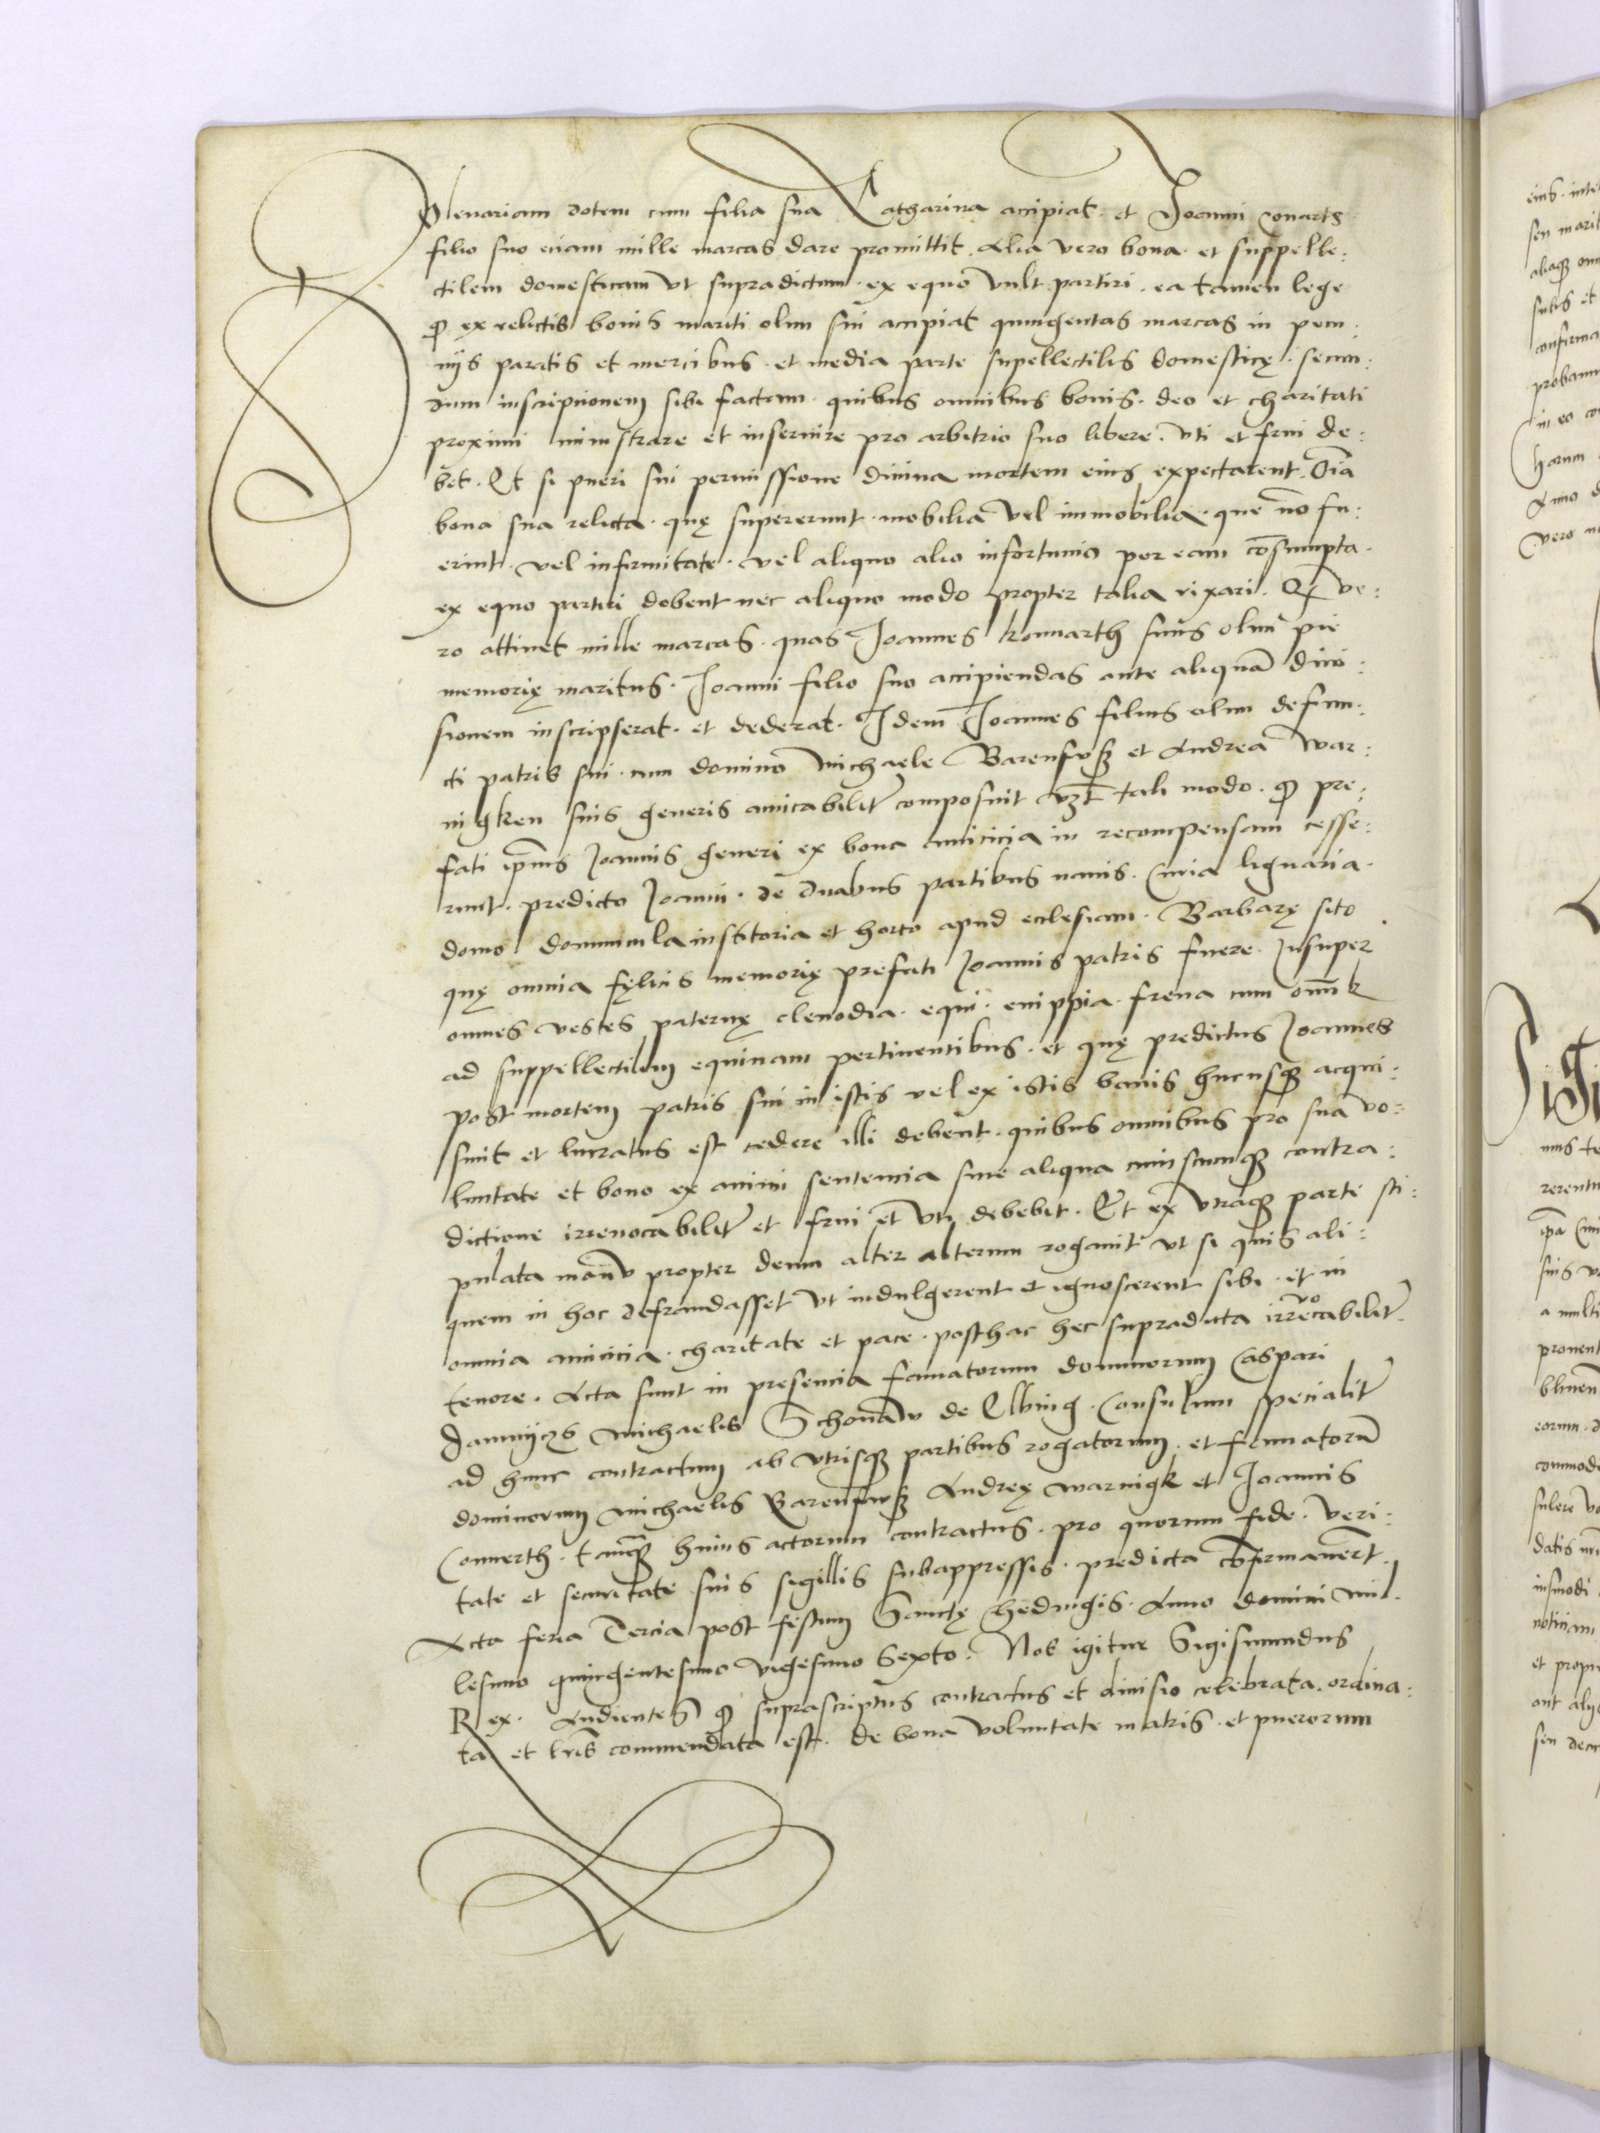 plenariam dotem cum filia sua Catharina accipiat. et Joanni Conarts
filio suo eciam mille marcas dare promittit. Alia vero bona. et suppelle:
ctilem domesticam vt supradictum. ex equo vult partiri. ea tamen lege
ꝙ ex relictis bonis mariti olim sui accipiat quingentas marcas in pecu:
nijs paratis et mercibus. et media parte supellectilis domesticę. secun:
dum inscriptionem sibi factam. quibus omnibus bonis. deo et charitati
proximi ministrare et inseruire pro arbitrio suo libere. vti et frui de:
bet. Et si pueri sui permissione diuina mortem eius expectarent. Oīa
bona sua relicta. quę supererunt. mobilia vel immobilia. que nō fu:
erint. vel infirmitate. vel aliquo alio infortunio per eam cōsumpta.
ex equo partiri debent nec aliquo modo propter talia rixari. Qȝ ve:
ro attinet mille marcas. quas Joannes konnarth suus olim pie
memorię maritus. Joanni filio suo accipiendas ante aliquā diui:
sionem inscripserat. et dederat. Idem Joannes filius olim defun:
cti patris sui. cum domino Michaele Barenfvsȝ et Andrea War:
nigken suis generis amicabilit̄ composuit vȝt tali modo. ꝙ pre:
fati ip̄ius Joannis generi ex bona amicicia in recompensam cesse:
runt. predicto Joanni. de duabus partibus nauis. Curia lignaria.
domo domuncula institoria et horto apud ecclesiam. Barbarę sito
quę omnia fęlicis memorię prefati Joannis patris fuere. Insuper
omnes vestes paternę clenodia. equi. enippia. frena cum om̄ibꝫ
ad suppellectilem equinam pertinentibus. et quę predictus Joannes
post mortem patris sui in istis vel ex istis bonis hucusqȝ acqui:
siuit et lucratus est cedere illi debent. quibus omnibus pro sua vo:
luntate et bono ex animi sentencia sine aliqua cuiuscunqȝ contra:
dictione irreuocabilit̄ et frui et vti debebit. Et ex vtraqȝ parte sti:
pulata manu propter deum alter alterum rogauit vt si quis ali:
quem in hoc defraudasset vt indulgerent et ignoscerent sibi. et in
omnia amicicia. charitate et pace. posthac hec supradicta irreuocabilit̄
tenore. Acta sunt in presencia famatorum dominorum Caspari
Damnijczs Michaelis Schonaw de Elbing. Consulum specialit̄
ad hunc contractum ab vtrisqȝ partibus rogatorum. et famatorū
dominorum Michaelis Barenfvsȝ Andreę Warnigk et Joannis
Connerth. tanqȝ huius actorum contractus. pro quorum fide. veri:
tate et securitate suis sigillis subappressis. predicta cōfirmauerūt.
Acta feria Tercia post festum Sanctę Hedwigis. Anno domini mil:
lesimo quingentesimo vigesimo Sexto. Nos igitur Sigismundus
Rex. Audientes ꝙ suprascriptus contractus et diuisio celebrata. ordina:
ta et lr̄is commendata est. de bona voluntate matris. et puerorum